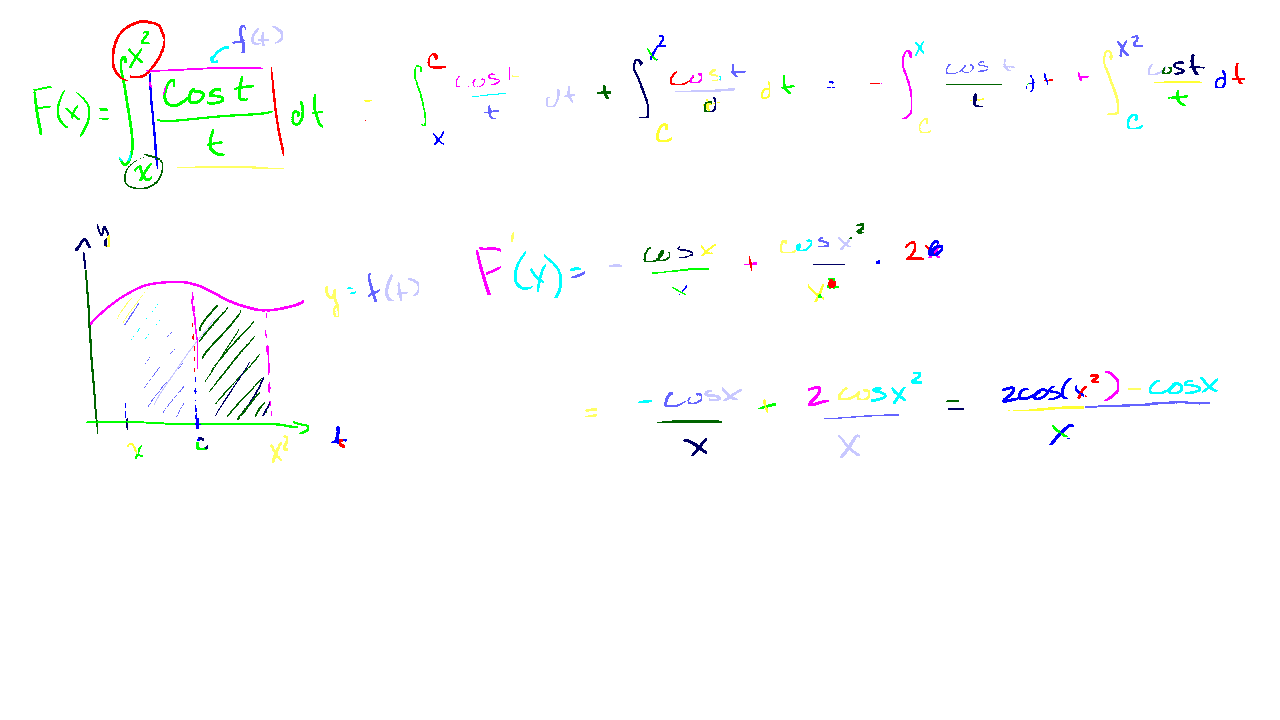 f(t)
F(x) = ∫_x^{x²} cos t / t dt = ∫_x^c cos t / t dt + ∫_c^{x²} cos t / t dt = - ∫_c^x cos t / t dt + ∫_c^{x²} cos t / t dt
y
y = f(t)
x c x² t
F'(x) = - cos x / x + cos x² / x² · 2x
= - cos x / x + 2 cos x² / x = 2cos(x²) - cos x / x